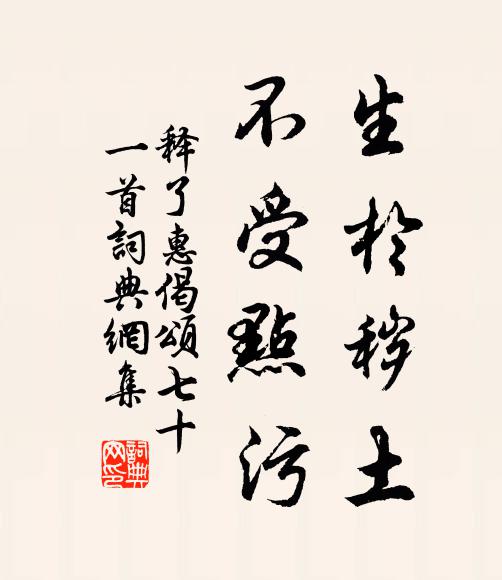 生於穢土
不受點污
释了惠偈頌七十
一首詞典網集
詞典
网印